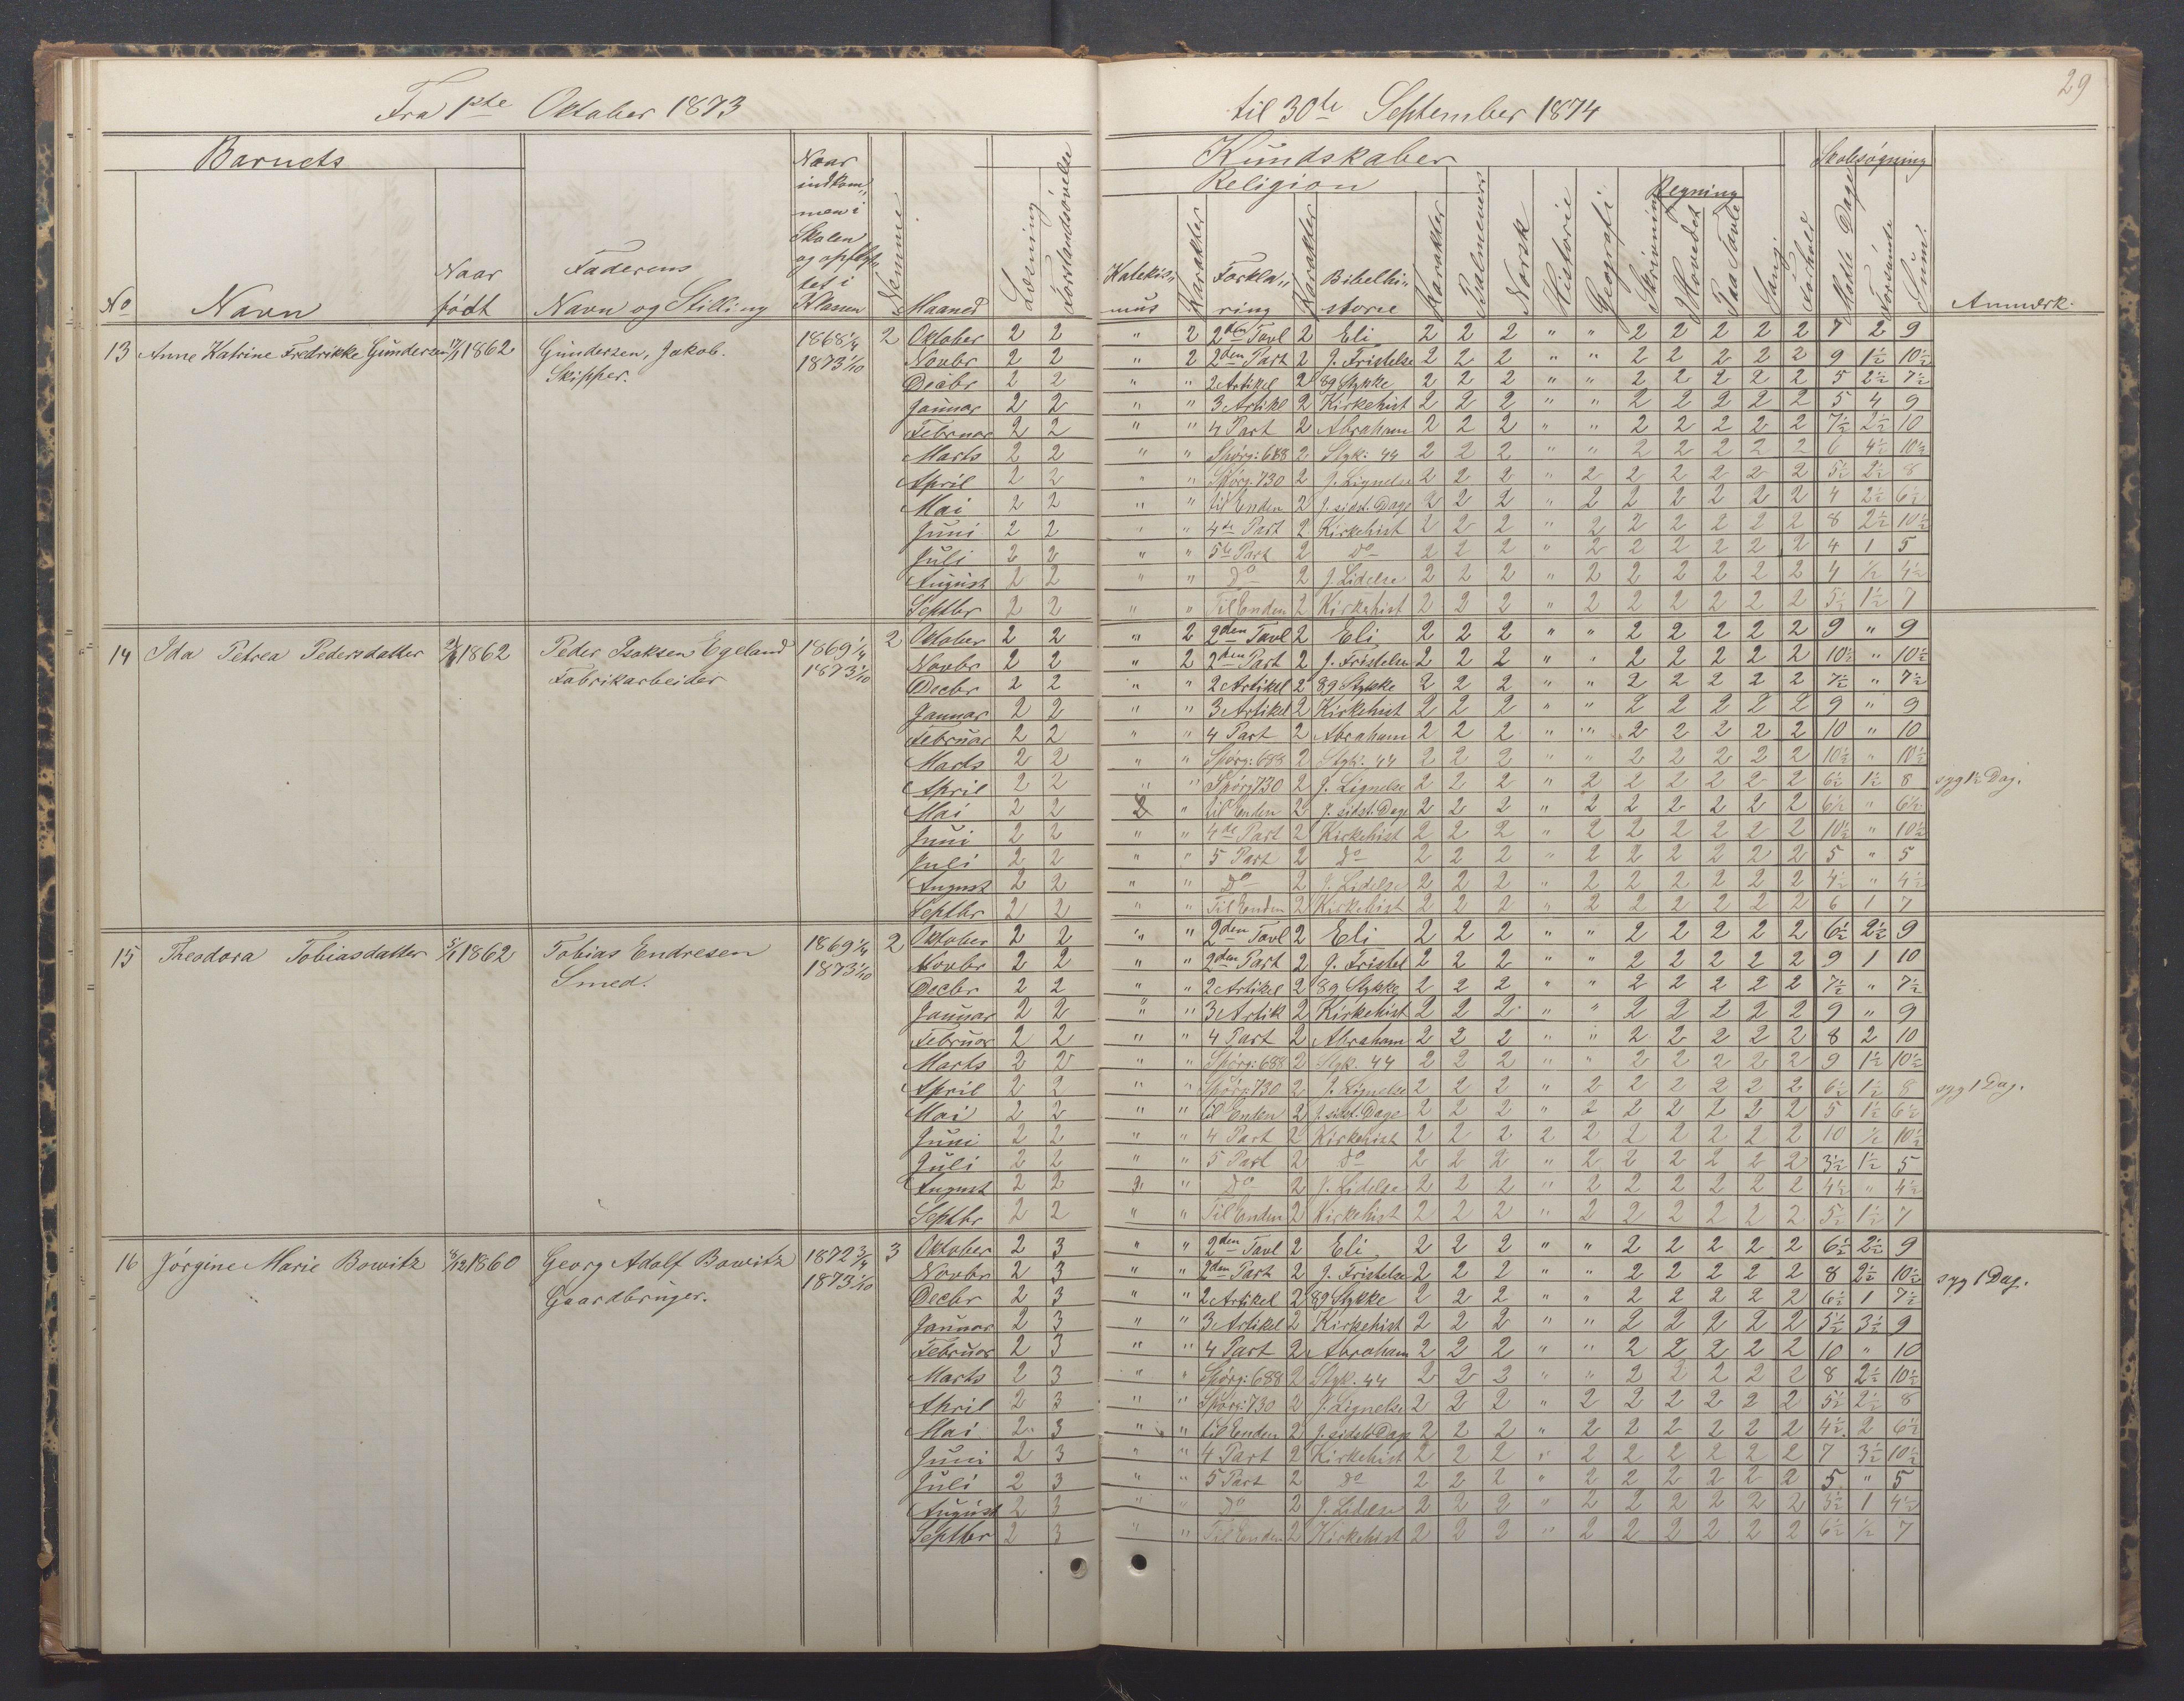 29
Fra 1ste Oktober 1873 til 30te September 1874
Barnets Kundskaber Skolesøgning
Religion Regning
No Navn Naar født Faderens Navn og Stilling Naar indkommen i Skolen og opflyttet i Klassen Nemme Maaned Læsning Forstandsøvelse Katekismus Karakter Forklaring Karakter Bibelhistorie Karakter Psalmevers Norsk Historie Geografi Skrivning Hovedet Paa Tavle Sang Forhold Mødte Dage Forsømte Sum Anmærk.
13 Anne Katrine Fredrikke Gundersen 17/1 1862 Gundersen, Jakob. Skipper. 1868 1/4 1873 1/10 2
Oktober 2 2 " 2 2den Tavl 2 Eli 2 2 2 " " 2 2 2 2 2 7 2 9
Novbr 2 2 " 2 2den Part 2 J. Fristelse 2 2 2 " " 2 2 2 2 2 9 1½ 10½
Decbr 2 2 " " 2 Artikel 2 89 Stykke 2 2 2 " " 2 2 2 2 2 5 2½ 7½
Januar 2 2 " " 3 Artikel 2 Kirkehist 2 2 2 " " 2 2 2 2 2 5 4 9
Februar 2 2 " " 4 Part 2 Abraham 2 2 2 " " 2 2 2 2 2 7½ 2½ 10
Marts 2 2 " " Spørg: 688 2 Styk: 44 2 2 2 " " 2 2 2 2 2 6 4½ 10½
April 2 2 " " Spørg. 730 2 J. Lignelse 2 2 2 " 2 2 2 2 2 2 5½ 2½ 8
Mai 2 2 " " til Enden 2 J. sidst. Dage 2 2 2 " 2 2 2 2 2 2 4 2½ 6½
Juni 2 2 " " 4de Part 2 Kirkehist 2 2 2 " 2 2 2 2 2 2 8 2½ 10½
Juli 2 2 " " 5te Part 2 Do 2 2 2 " 2 2 2 2 2 2 4 1 5
August 2 2 " " Do 2 J. Lidelse 2 2 2 " 2 2 2 2 2 2 4 ½ 4½
Septbr 2 2 " " Til Enden 2 Kirkehist 2 2 2 " 2 2 2 2 2 2 5½ 1½ 7
14 Ida Petrea Pedersdatter 1862 Peder Isaksen Egeland Fabrikarbeider 1869 1/4 1873 1/10 2
Oktober 2 2 " 2 2den Tavl 2 Eli 2 2 2 " " 2 2 2 2 2 9 " 9
Novbr 2 2 " 2 2den Part 2 J. Fristelse 2 2 2 " " 2 2 2 2 2 10½ " 10½
Decbr 2 2 " " 2 Artikel 2 89 Stykke 2 2 2 " " 2 2 2 2 2 7½ " 7½
Januar 2 2 " " 3 Artikel 2 Kirkehist 2 2 2 " " 2 2 2 2 2 9 " 9
Februar 2 2 " " 4 Part 2 Abraham 2 2 2 " " 2 2 2 2 2 10 " 10
Marts 2 2 " " Spørg: 688 2 Styk: 44 2 2 2 " " 2 2 2 2 2 10½ " 10½
April 2 2 " " Spørg 730 2 J. Lignelse 2 2 2 " 2 2 2 2 2 2 6½ 1½ 8 syg 1½ Dag.
Mai 2 2 2 " til Enden 2 J. sidst. Dage 2 2 2 " 2 2 2 2 2 2 6½ " 6½
Juni 2 2 " " 4de Part 2 Kirkehist 2 2 2 " 2 2 2 2 2 2 10½ " 10½
Juli 2 2 " " 5 Part 2 do 2 2 2 " 2 2 2 2 2 2 5 " 5
August 2 2 " " Do 2 J. Lidelse 2 2 2 " 2 2 2 2 2 2 4½ " 4½
Septbr 2 2 " " Til Enden 2 Kirkehist 2 2 2 " 2 2 2 2 2 2 6 1 7
15 Theodora Tobiasdatter 5/1 1862 Tobias Endresen Smed. 1869 1/4 1873 1/10 2
Oktober 2 2 " " 2den Tavl 2 Eli 2 2 2 " " 2 2 2 2 2 6½ 2½ 9
Novbr 2 2 " " 2den Part 2 J. Fristel 2 2 2 " " 2 2 2 2 2 9 1 10
Decbr 2 2 " " 2 Artikel 2 89 Stykke 2 2 2 " " 2 2 2 2 2 7½ " 7½
Januar 2 2 " " 3 Artik 2 Kirkehist 2 2 2 " " 2 2 2 2 2 9 " 9
Februar 2 2 " " 4 Part 2 Abraham 2 2 2 " " 2 2 2 2 2 8 2 10
Marts 2 2 " " Spørg: 688 2 Styk. 44 2 2 2 " " 2 2 2 2 2 9 1½ 10½
April 2 2 " " Spørg: 730 2 J. Lignelse 2 2 2 " 2 2 2 2 2 2 6½ 1½ 8 syg 1 Dag.
Mai 2 2 " " til Enden 2 J. sidst. Dage 2 2 2 " 2 2 2 2 2 2 5 1½ 6½
Juni 2 2 " " 4 Part 2 Kirkehist 2 2 2 2 2 2 2 2 2 2 10 ½ 10½
Juli 2 2 " " 5 Part 2 do 2 2 2 " 2 2 2 2 2 2 3½ 1½ 5
August 2 2 " Do 2 J. Lidelse 2 2 2 " 2 2 2 2 2 2 4½ " 4½
Septbr 2 2 " " Til Enden 2 Kirkehist 2 2 2 " 2 2 2 2 2 2 5½ 1½ 7
16 Jørgine Marie Bowitz 8/12 1860 Georg Adolf Bowitz Gaardbruger. 1872 3/4 1873 1/10 3
Oktober 2 3 " " 2den Tavl 2 Eli 2 2 2 " " 2 2 2 2 2 6½ 2½ 9
Novbr 2 3 " " 2den Part 2 J. Fristelse 2 2 2 " " 2 2 2 2 2 8 2½ 10½ syg 1 Dag.
Decbr 2 3 " " 2 Artikel 2 89 Stykke 2 2 2 " " 2 2 2 2 2 6½ 1 7½
Januar 2 3 " " 3 Artikel 2 Kirkehist 2 2 2 " " 2 2 2 2 2 5½ 3½ 9
Februar 2 3 " " 4 Part 2 Abraham 2 2 2 " " 2 2 2 2 2 10 " 10
Marts 2 3 " " Spørg: 688 2 Styk. 44 2 2 2 " " 2 2 2 2 2 8 2½ 10½
April 2 3 " " Spørg: 730 2 J. Lignelse 2 2 2 " 2 2 2 2 2 2 5½ 2½ 8
Mai 2 3 " " til Enden 2 J. sidst Dage 2 2 2 " 2 2 2 2 2 2 4½ 2 6½
Juni 2 3 " " 4 Part 2 Kirkehist 2 2 2 " 2 2 2 2 2 2 7 3½ 10½
Juli 2 3 " " 5 Part 2 do 2 2 2 " 2 2 2 2 2 2 5 " 5
August 2 3 " " Do 2 J. Lidelse 2 2 2 " 2 2 2 2 2 2 3½ 1 4½
Septbr 2 3 " " Til Enden 2 Kirkehist 2 2 2 " 2 2 2 2 2 2 6½ ½ 7